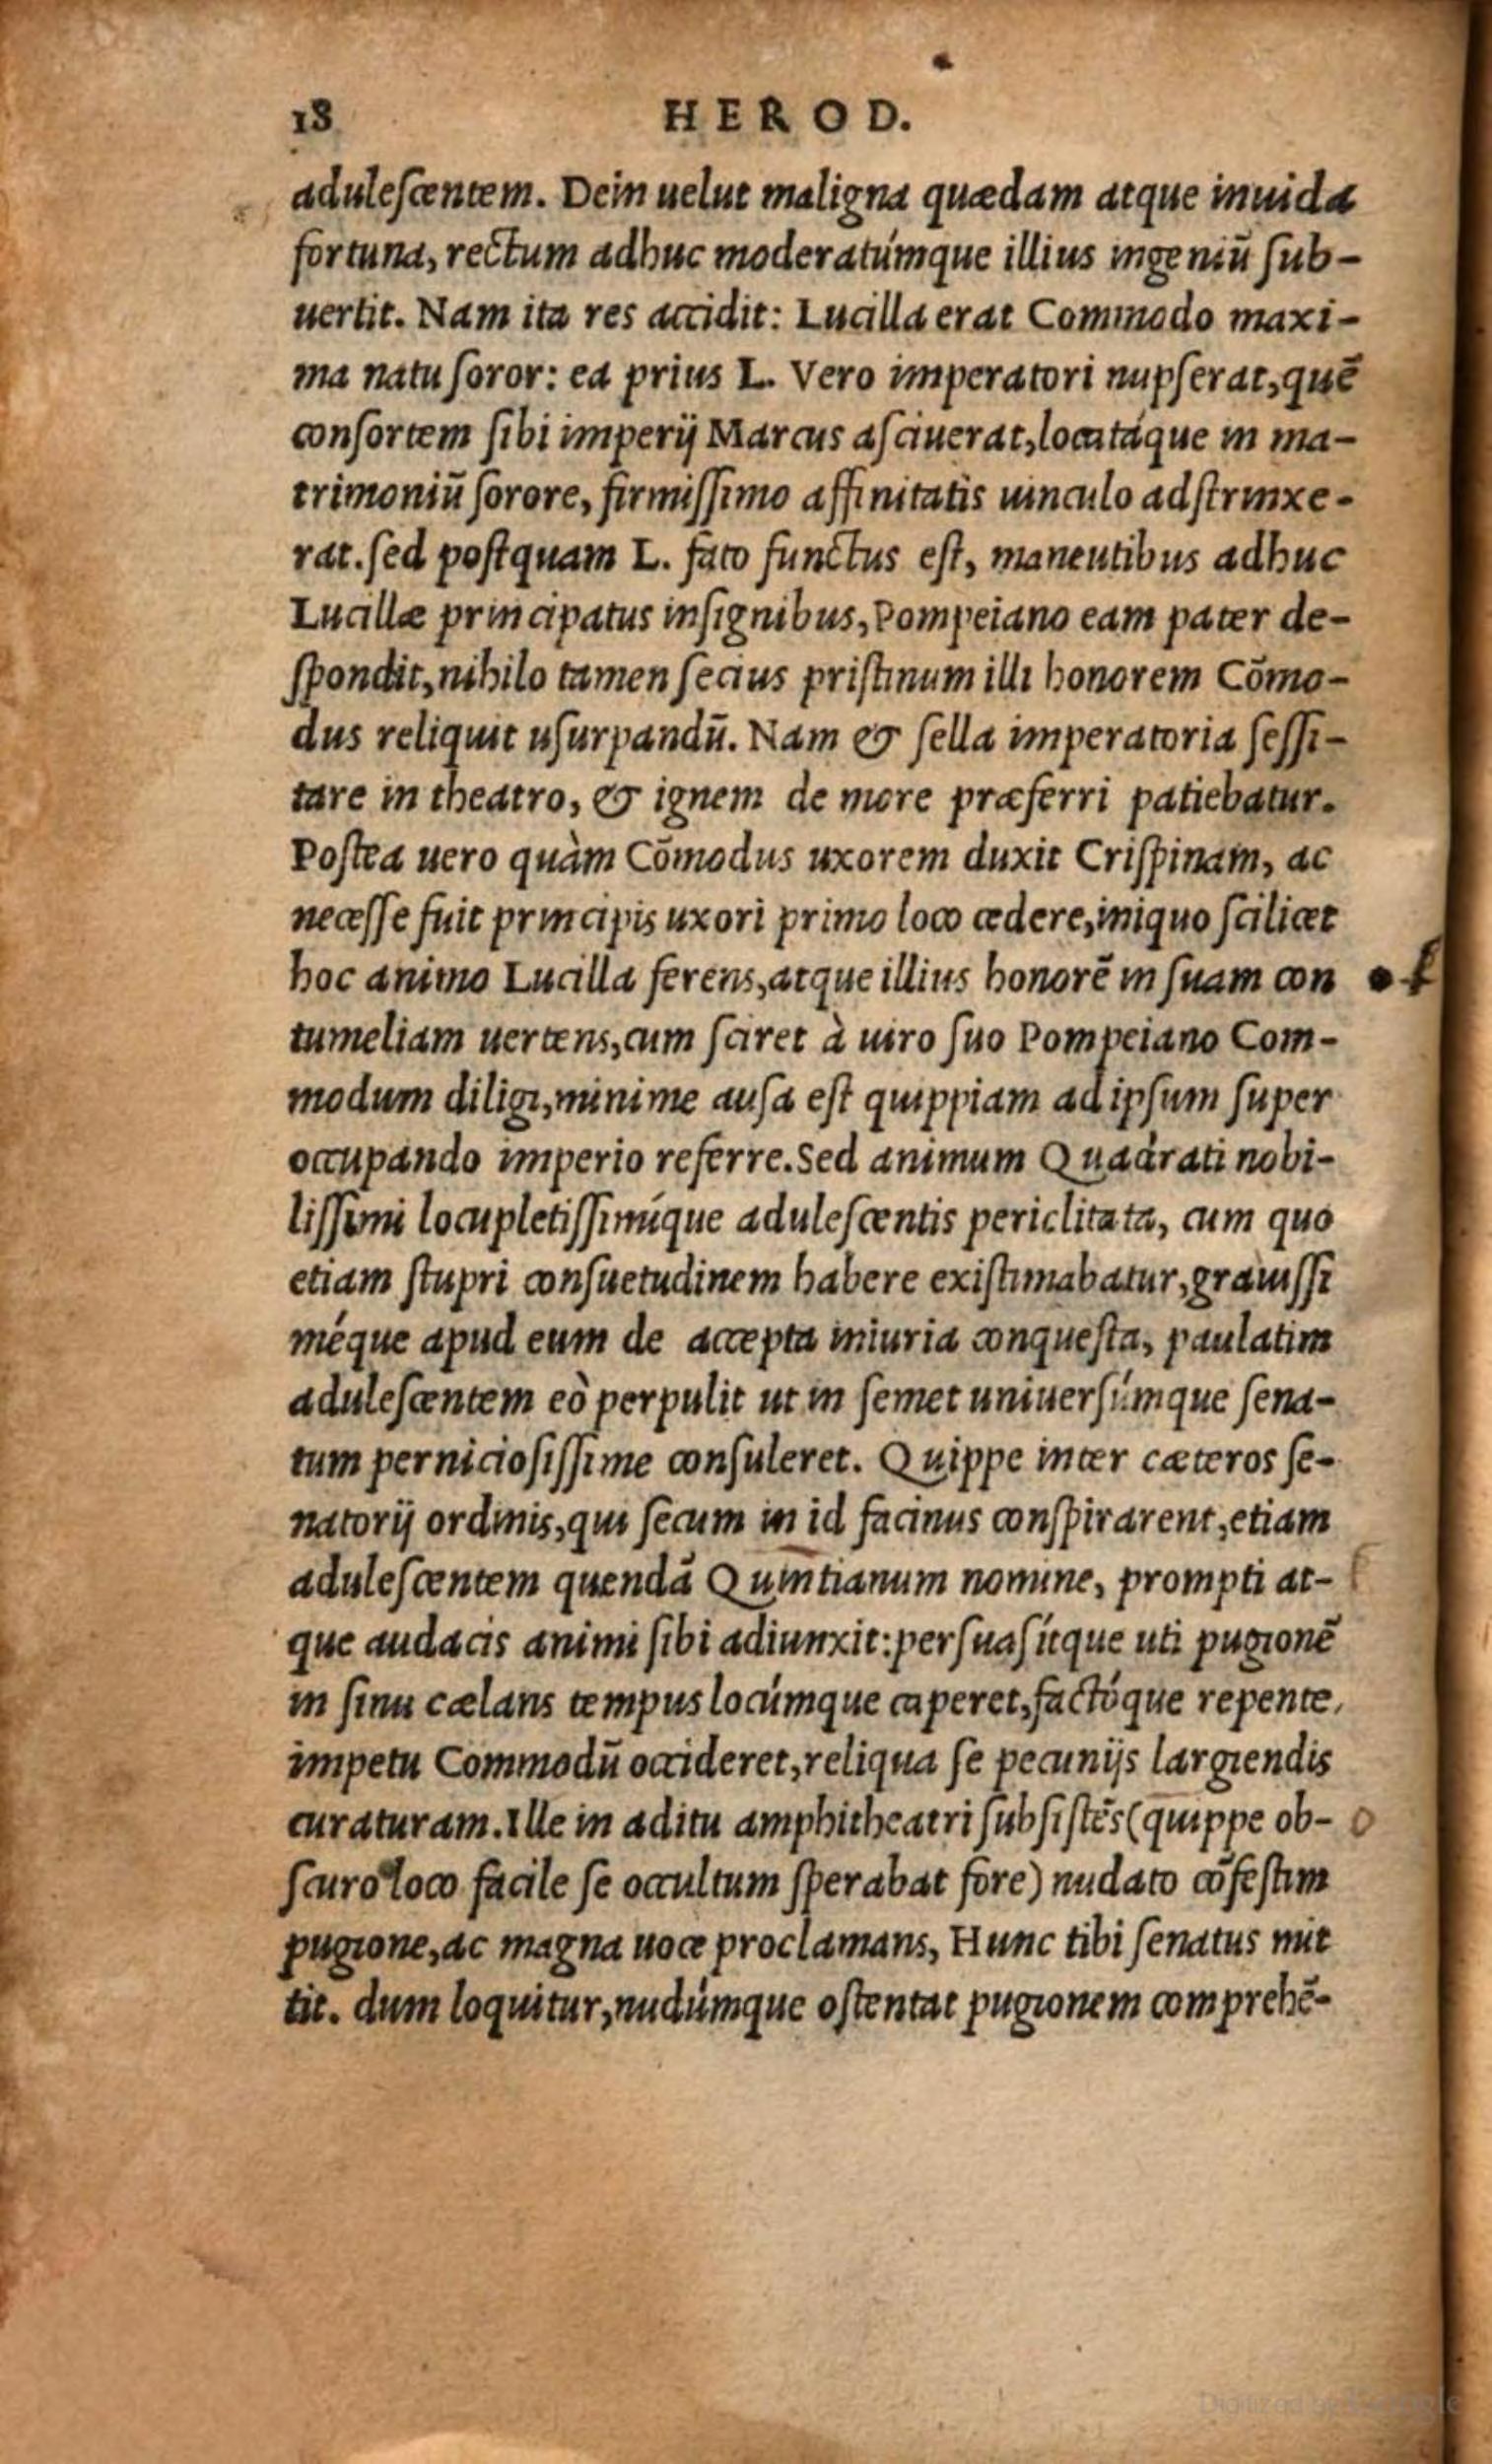 18 HEROD.
adulescentem. Dein uelut maligna quædam atque inuida
fortuna, rectum adhuc moderatúmque illius ingeniū sub-
uertit. Nam ita res accidit: Lucilla erat Commodo maxi-
ma natu soror: ea prius L. Vero imperatori nupserat, quē
consortem sibi imperij Marcus asciuerat, locatáque in ma-
trimoniū sorore, firmissimo affinitatis uinculo adstrinxe-
rat. sed postquam L. fato functus est, maneutibus adhuc
Lucillæ principatus insignibus, Pompeiano eam pater de-
spondit, nihilo tamen secius pristinum illi honorem Cōmo-
dus reliquit usurpandū. Nam & sella imperatoria sessi-
tare in theatro, & ignem de more præferri patiebatur.
Postea uero quàm Cōmodus uxorem duxit Crispinam, ac
necesse fuit principis uxori primo loco cedere, iniquo scilicet
hoc animo Lucilla ferens, atque illius honorē in suam con
tumeliam uertens, cum sciret à uiro suo Pompeiano Com-
modum diligi, minime ausa est quippiam ad ipsum super
occupando imperio referre. Sed animum Quadrati nobi-
lissimi locupletissimíque adulescentis periclitata, cum quo
etiam stupri consuetudinem habere existimabatur, grauissi
méque apud eum de accepta iniuria conquesta, paulatim
adulescentem eò perpulit ut in semet uniuersúmque sena-
tum perniciosissime consuleret. Quippe inter cæteros se-
natorij ordinis, qui secum in id facinus conspirarent, etiam
adulescentem quendā Quintianum nomine, prompti at-
que audacis animi sibi adiunxit: persuasítque uti pugionē
in sinu cælans tempus locúmque caperet, factóque repente
impetu Commodū occideret, reliqua se pecunijs largiendis
curaturam. Ille in aditu amphitheatri subsistēs (quippe ob-
scuro loco facile se occultum sperabat fore) nudato cōfestim
pugione, ac magna uoce proclamans, Hunc tibi senatus mit
tit. dum loquitur, nudúmque ostentat pugionem comprehē-
Digitized by Google